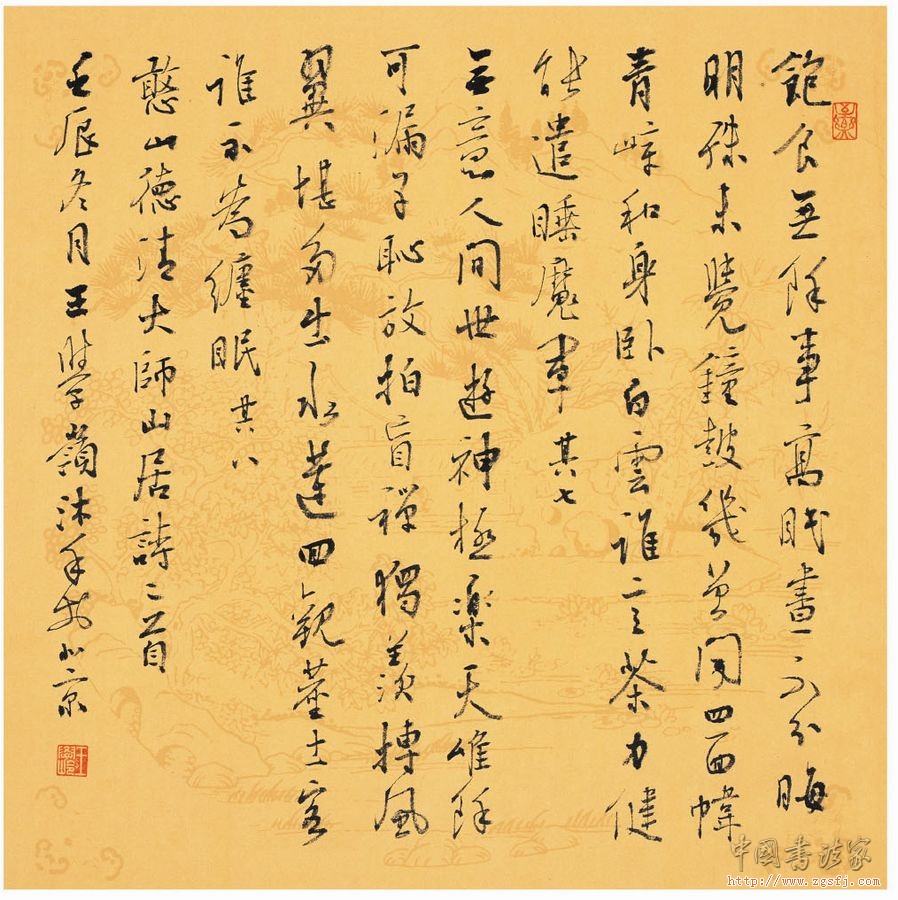 飽食無餘事高眠晝不分晦
明殊未覺鐘鼓幾曾聞四面幃
青嶂和身臥白雲誰言茶力健
能遣睡魔軍 其七
無意人間世遊神極樂天唯餘
可漏子恥放拍盲禪獨羨摶風
翼堪出水蓮回觀塵土客
誰不為纏眠 其八
憨山德清大師山居詩二首
壬辰冬月王學嶺沐手於北京
中國書法家
http://www.zgsfj.com